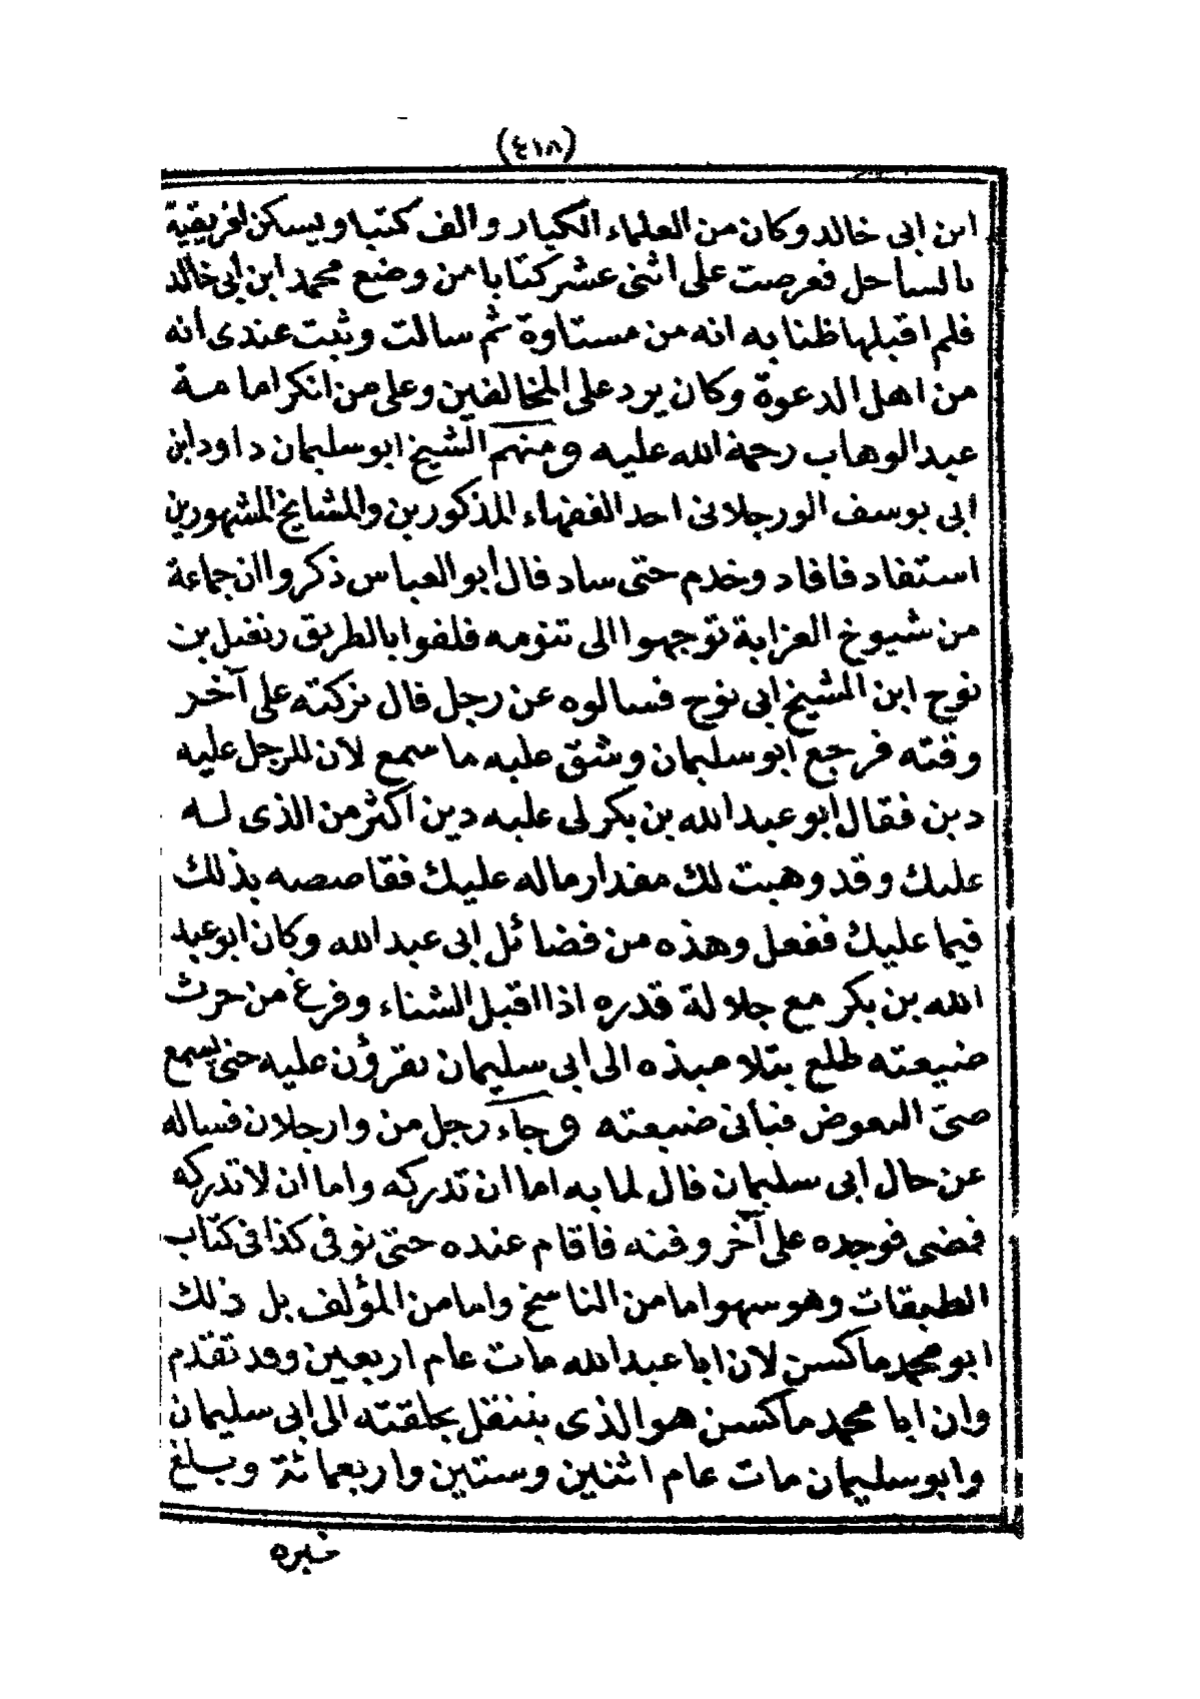 (٤١٨)
ابن ابى خالد وكان من العلماء الكبار والف كتبا ويسكن افريقية
بالساحل فعرضت على اثنى عشر كتابا من وضع محمد ابن ابى خالد
فلم اقبلها ظنا به انه من مستاوة ثم سالت وثبت عندى انه
من اهل الدعوة وكان يرد على المخالفين وعلى من انكر امامة
عبد الوهاب رحمة الله عليه ومنهم الشيخ ابو سليمان داود ابن
ابى يوسف الورجلانى احد الفقهاء المذكورين والمشايخ المشهورين
استفاد فافاد وخدم حتى ساد قال أبو العباس ذكروا ان جماعة
من شيوخ العزابة توجهوا الى تنومه فلقوا بالطريق زنغيل بن
نوح ابن الشيخ ابى نوح فسالوه عن رجل قال تركته على آخر
وقته فرجع ابو سليمان وشق عليه ما سمع لان للرجل عليه
دين فقال ابو عبد الله بن بكر لى عليه دين اكثر من الذى له
عليك وقد وهبت لك مقدار ماله عليك فقاصصه بذلك
فيما عليك ففعل وهذه من فضائل ابى عبد الله وكان ابو عبد
الله بن بكر مع جلالة قدره اذا اقبل الشتاء وفرغ من حرث
ضيعته طلع بتلاميذه الى ابى سليمان يقرؤن عليه حتى يسمع
صىّ البعوض فيأتى ضيعته وجاء رجل من وارجلان فساله
عن حال ابى سليمان قال لما به اما ان تدركه واما ان لا تدركه
فمضى فوجده على آخر وقته فاقام عنده حتى توفى كذا فى كتاب
الطبقات وهو سهو اما من الناسخ واما من المؤلف بل ذلك
ابو محمد ماكسن لان ابا عبد الله مات عام اربعين وقد تقدم
وان ابا محمد ماكسن هو الذى ينتقل بحلقته الى ابى سليمان
وابو سليمان مات عام اثنين وستين واربعمائة وبلغ
خبره